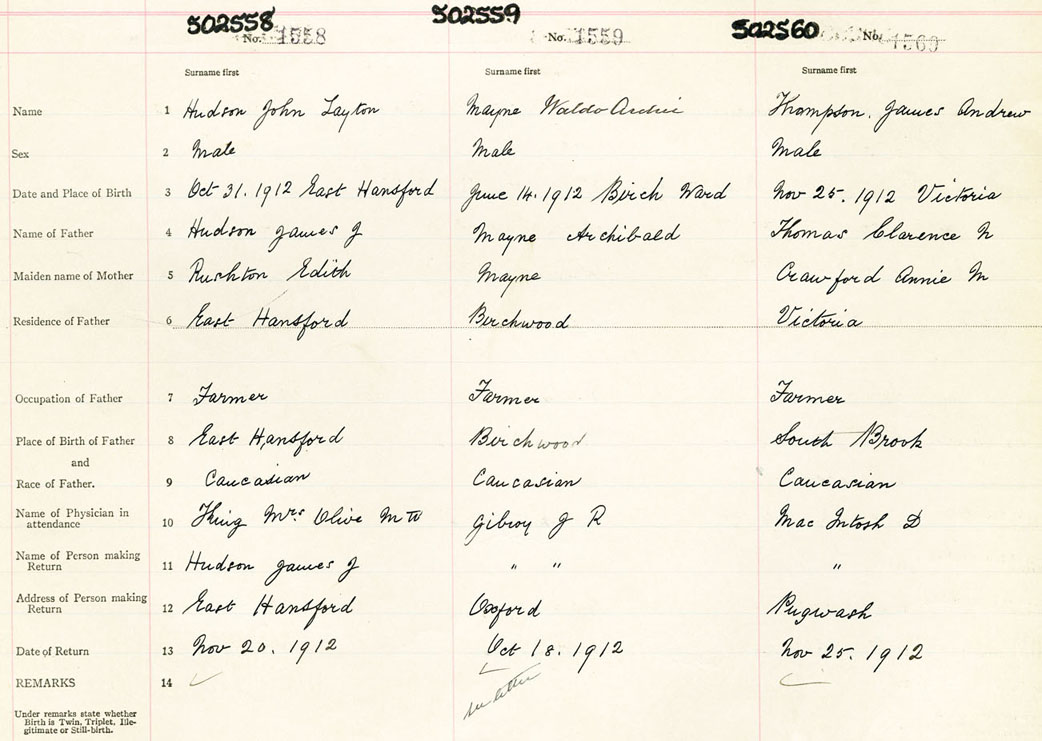 502558 502559 502560
No. 1558 No. 1559 No. 1560
Surname first Surname first Surname first
Name 1 Hudson John Layton Mayne Waldo Archie Thompson. James Andrew
Sex 2 Male Male Male
Date and Place of Birth 3 Oct 31. 1912 East Hansford June 14. 1912 Birch Ward Nov 25. 1912 Victoria
Name of Father 4 Hudson James J Mayne Archibald Thomas Clarence N
Maiden name of Mother 5 Rushton Edith Mayne Crawford Annie M
Residence of Father 6 East Hansford Birchwood Victoria
Occupation of Father 7 Farmer Farmer Farmer
Place of Birth of Father 8 East Hansford Birchwood South Brook
and
Race of Father. 9 Caucasian Caucasian Caucasian
Name of Physician in
attendance 10 Mrs Olive M J R Mac Intosh D
Name of Person making
Return 11 Hudson James J " " "
Address of Person making
Return 12 East Hansford Oxford Pugwash
Date of Return 13 Nov 20. 1912 Oct 18. 1912 Nov 25. 1912
REMARKS 14 see letter
Under remarks state whether
Birth is Twin, Triplet, Ille-
gitimate or Still-birth.